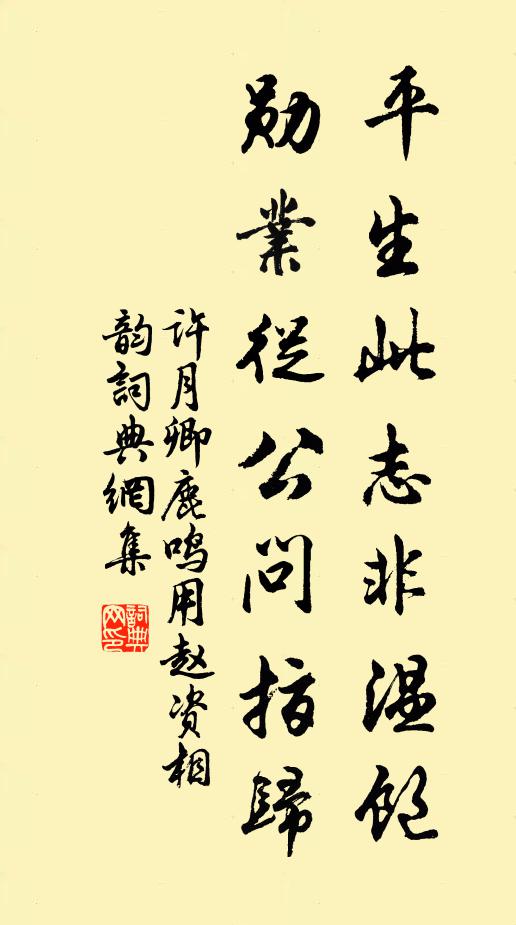 平生此志非温飽
勋業從公問指歸
许月卿鹿鳴用赵资相
韵詞典網集
詞典網印